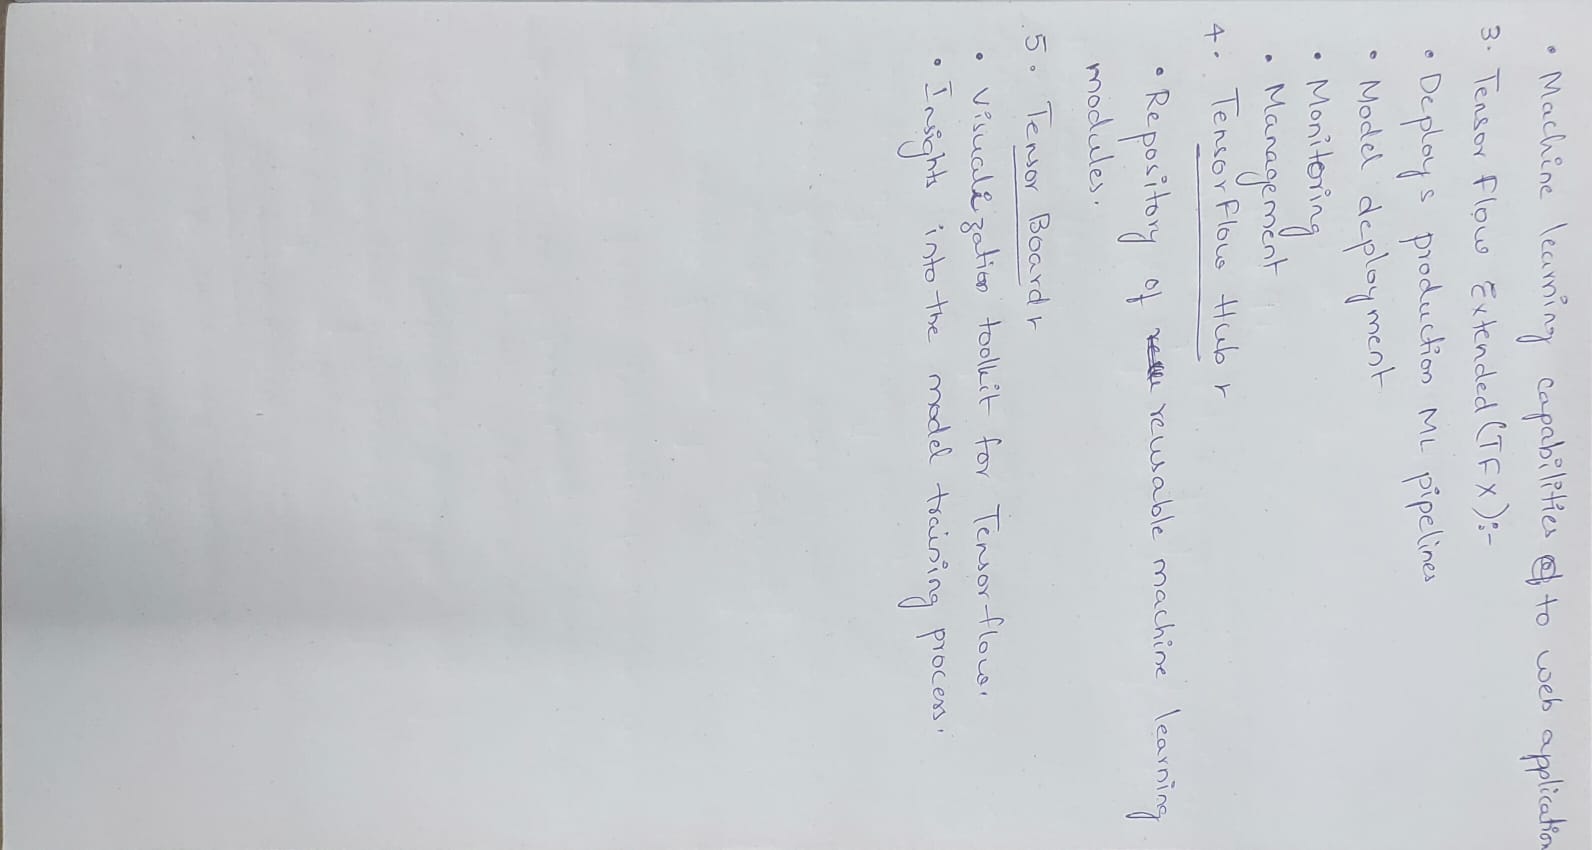 • Machine learning capabilities to web application
3. Tensor Flow Extended (TFX):-
• Deploys production ML pipelines
• Model deployment
• Monitoring
• Management
4. TensorFlow Hub
• Repository of reusable machine learning
modules.
5. Tensor Board
• Visualization toolkit for Tensor-flow.
• Insights into the model training process.